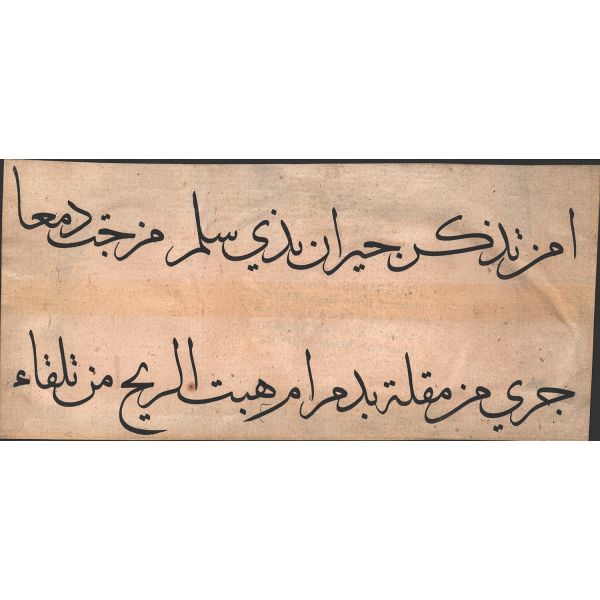 امن تذكر جيران بذي سلم مزجت دمعا
جري من مقلة بدم ام هبت الريح من تلقاء